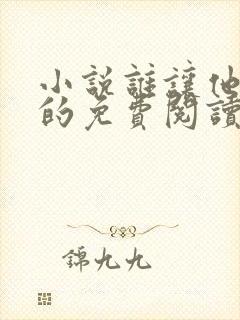 小說誰讓他
的免費閱讀
錦九九